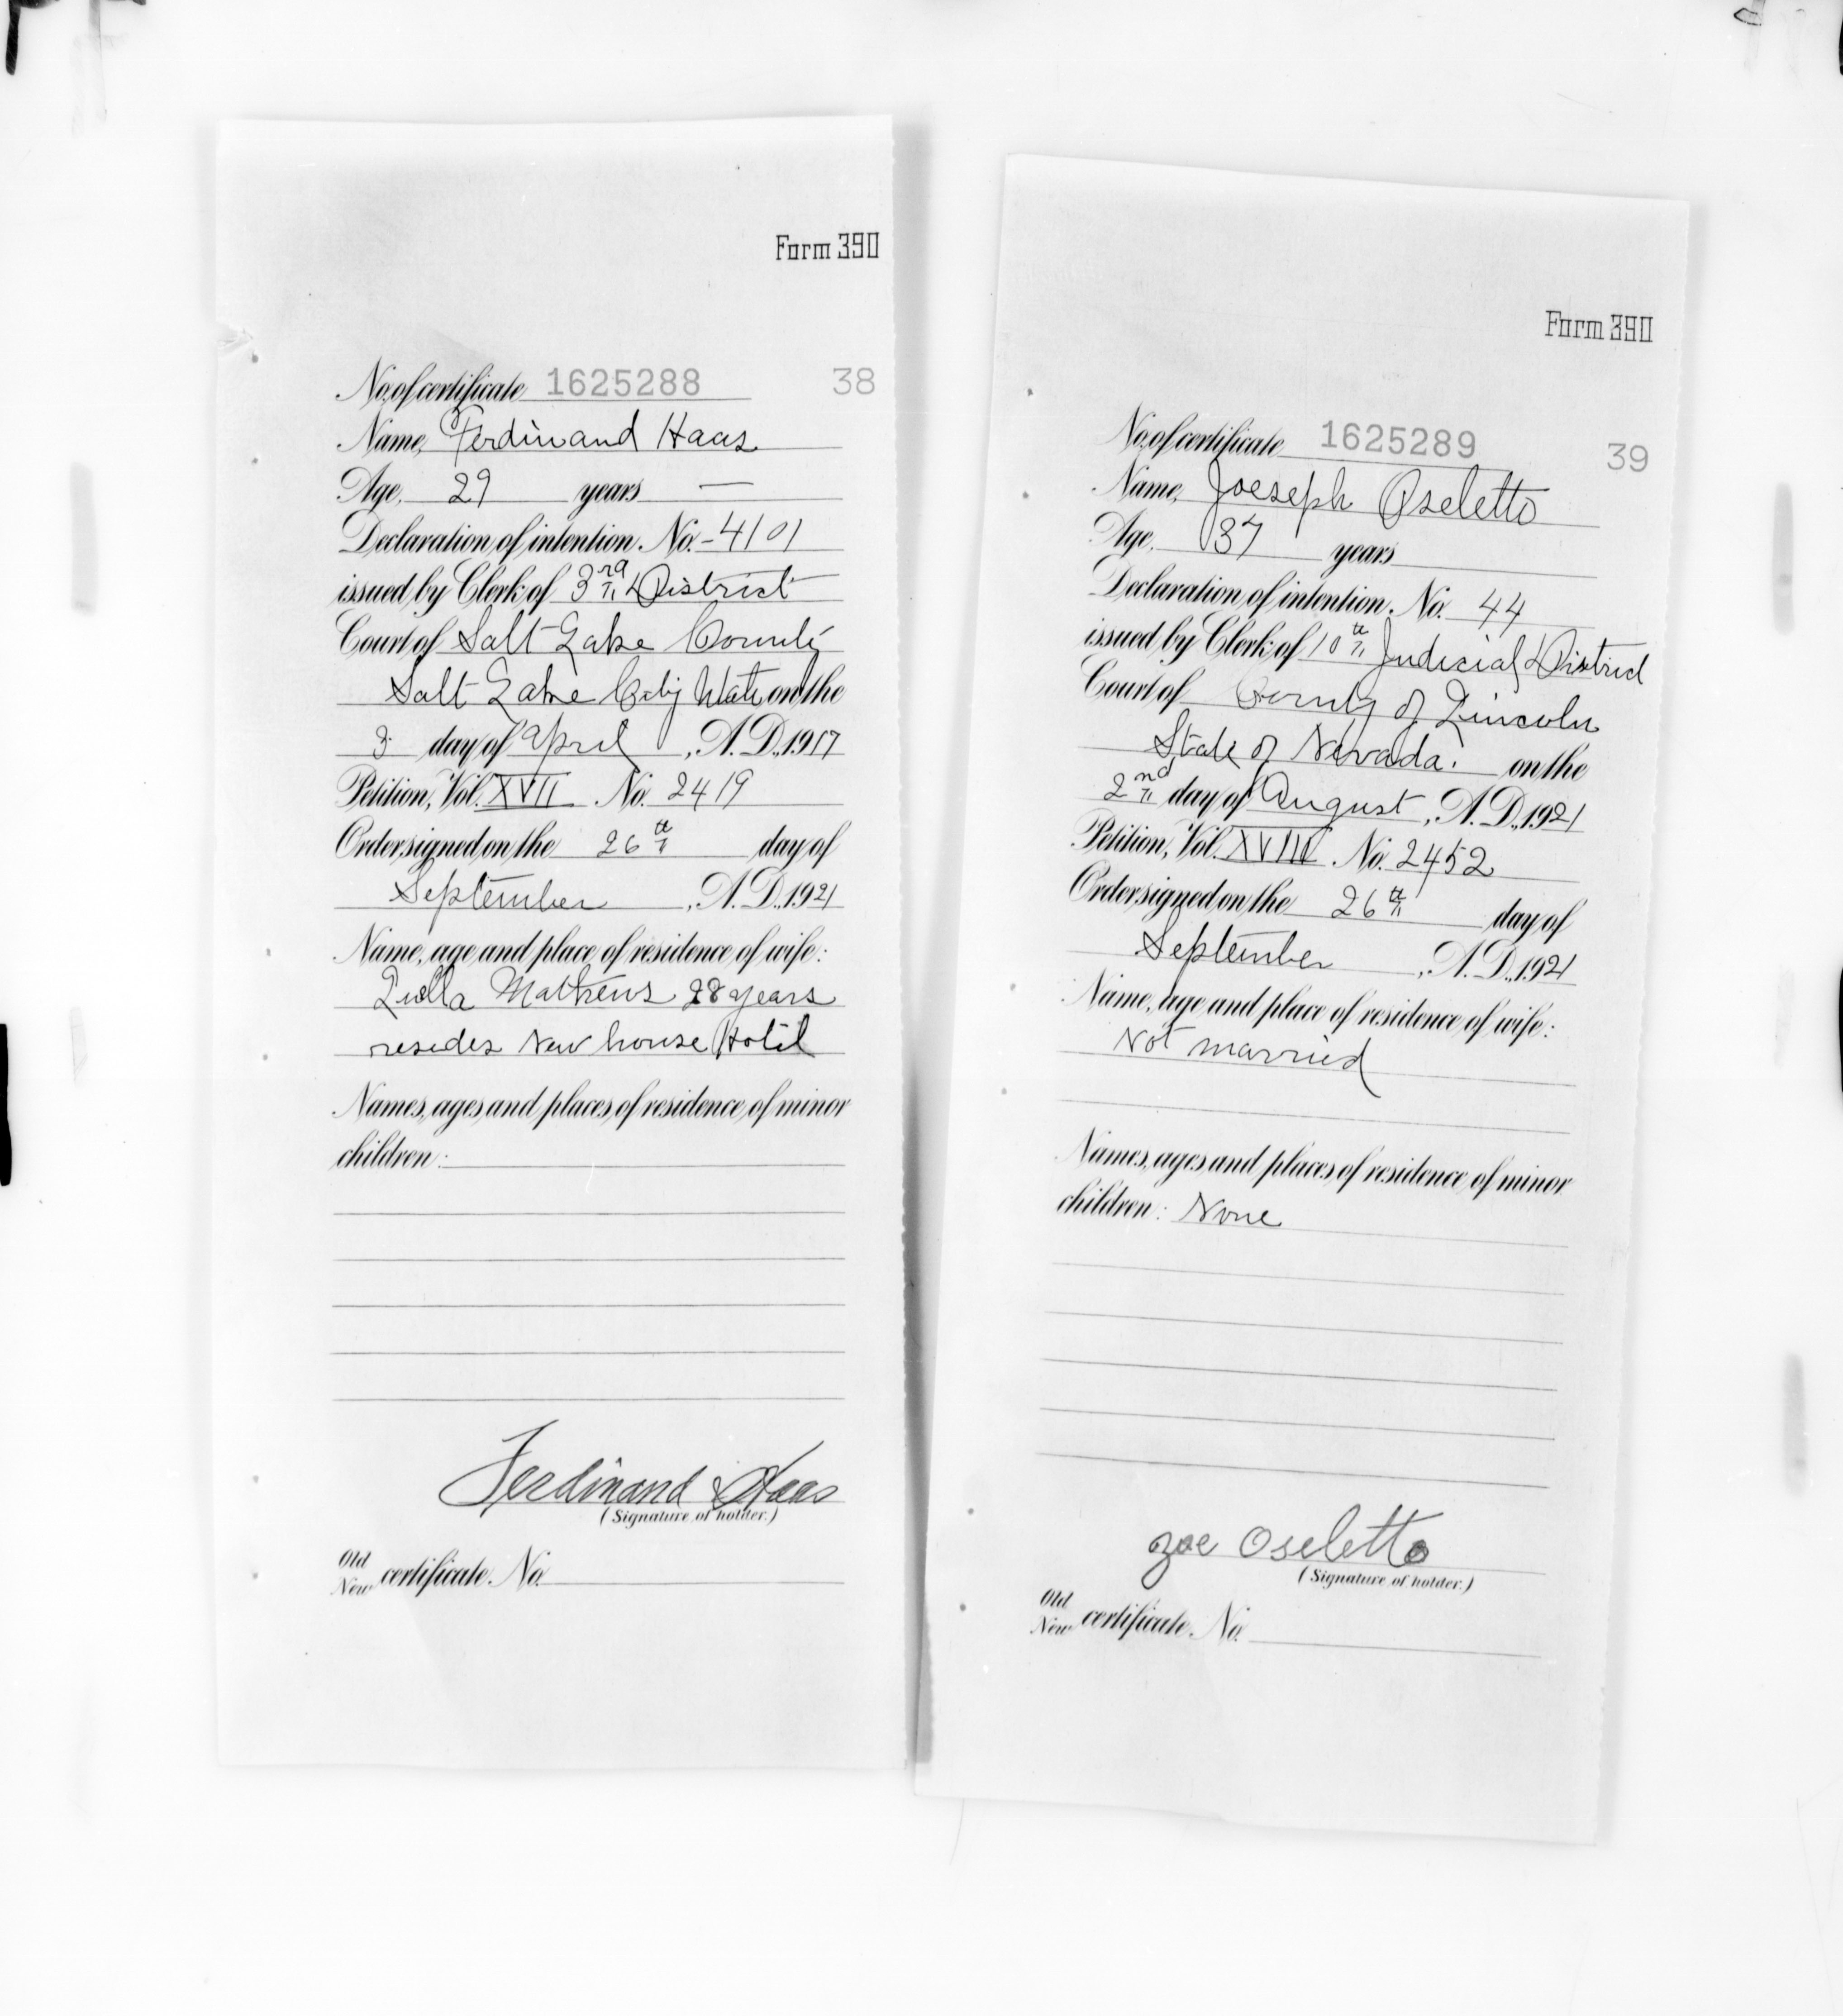 Form 390
No. of certificate 1625288 38
Name, Ferdinand Haas
Age, 29 years —
Declaration of intention, No. - 4101
issued by Clerk of 3rd District
Court of Salt Lake County
Salt Lake City Utah on the
3 day of April, A.D. 1917
Petition, Vol. XVII No. 2419
Order signed on the 26th day of
September, A.D. 1921
Name, age and place of residence of wife:
Mathews 28 years
resides New house Hotel
Names, ages and places of residence of minor
children:
Ferdinand Haas
(Signature of holder.)
Old
New certificate No.
Form 390
No. of certificate 1625289 39
Name, Joeseph Oseletto
Age, 37 years
Declaration of intention, No. 44
issued by Clerk of 10th Judicial District
Court of County of Lincoln
State of Nevada. on the
2nd day of August, A.D. 1921
Petition, Vol. XVIII No. 2452
Order signed on the 26th day of
September, A.D. 1921
Name, age and place of residence of wife:
Not married
Names, ages and places of residence of minor
children: None
zoe Oseletto
(Signature of holder.)
Old
New certificate No.